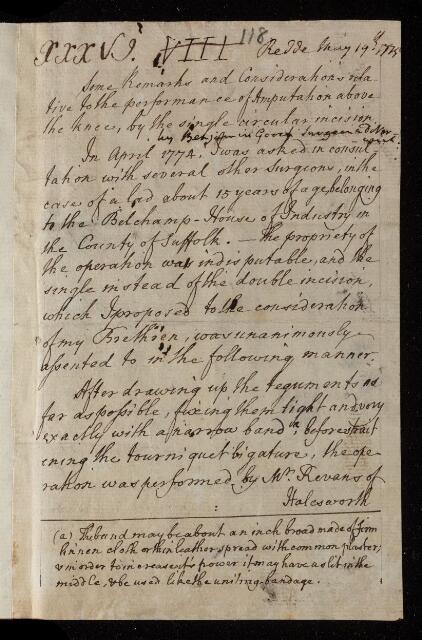 XXXVI. VIII 118 Redde May 19th 1775
Some Remarks and Considerations rela-
tive to the performance of Amputation above
the knee, by the single circular incision,
by Benjamin Gooch Surgeon at
In April 1774, I was asked in consul-
tation with several other Surgeons, in the
case of a lad about 15 years of age, belonging
to the Belchamp-House of Industry in
the County of Suffolk. — The propriety of
the operation was indisputable, and the
single instead of the double incision,
which I proposed to the consideration
of my Brethren, was unanimously
assented to in the following manner.
After drawing up the teguments as
far as possible, fixing them tight and very
exactly with a narrow band (a), before strait
ening the tourniquet ligature, the ope-
ration was performed by Mr. Revans of
Halesworth
(a) The band may be about an inch broad made of firm
linnen cloth or thin leather spread with common plaster;
& in order to increase its power it may have a slit in the
middle, & be used like the uniting-bandage.